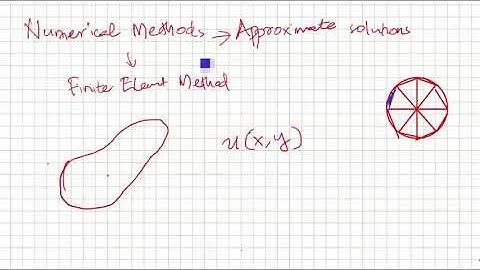 Numerical Methods → Approximate solutions
↓
Finite Elemnt Method
u(x,y)